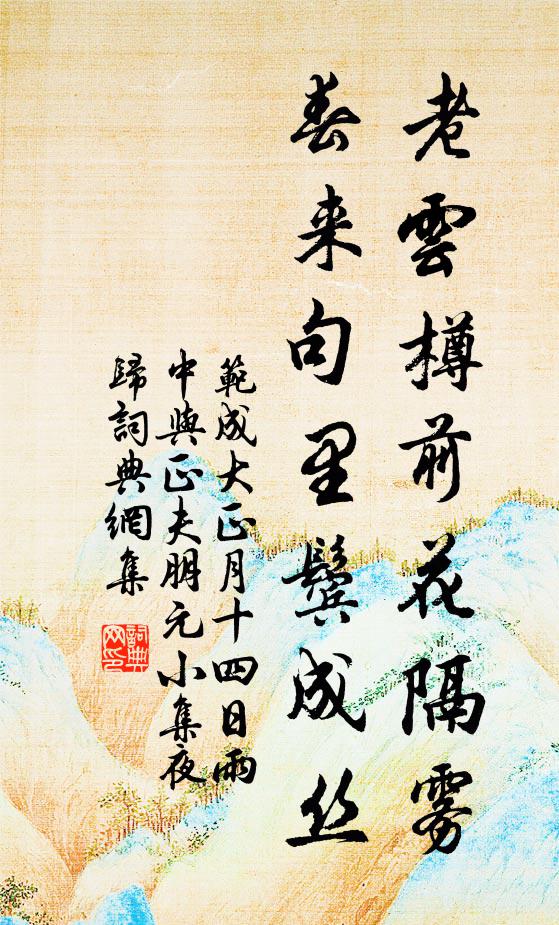 老雲樽前花隔雾
春来句里鬓成丝
範成大正月十四日雨
中與正夫朋元小集夜
歸詞典網集
詞典网印